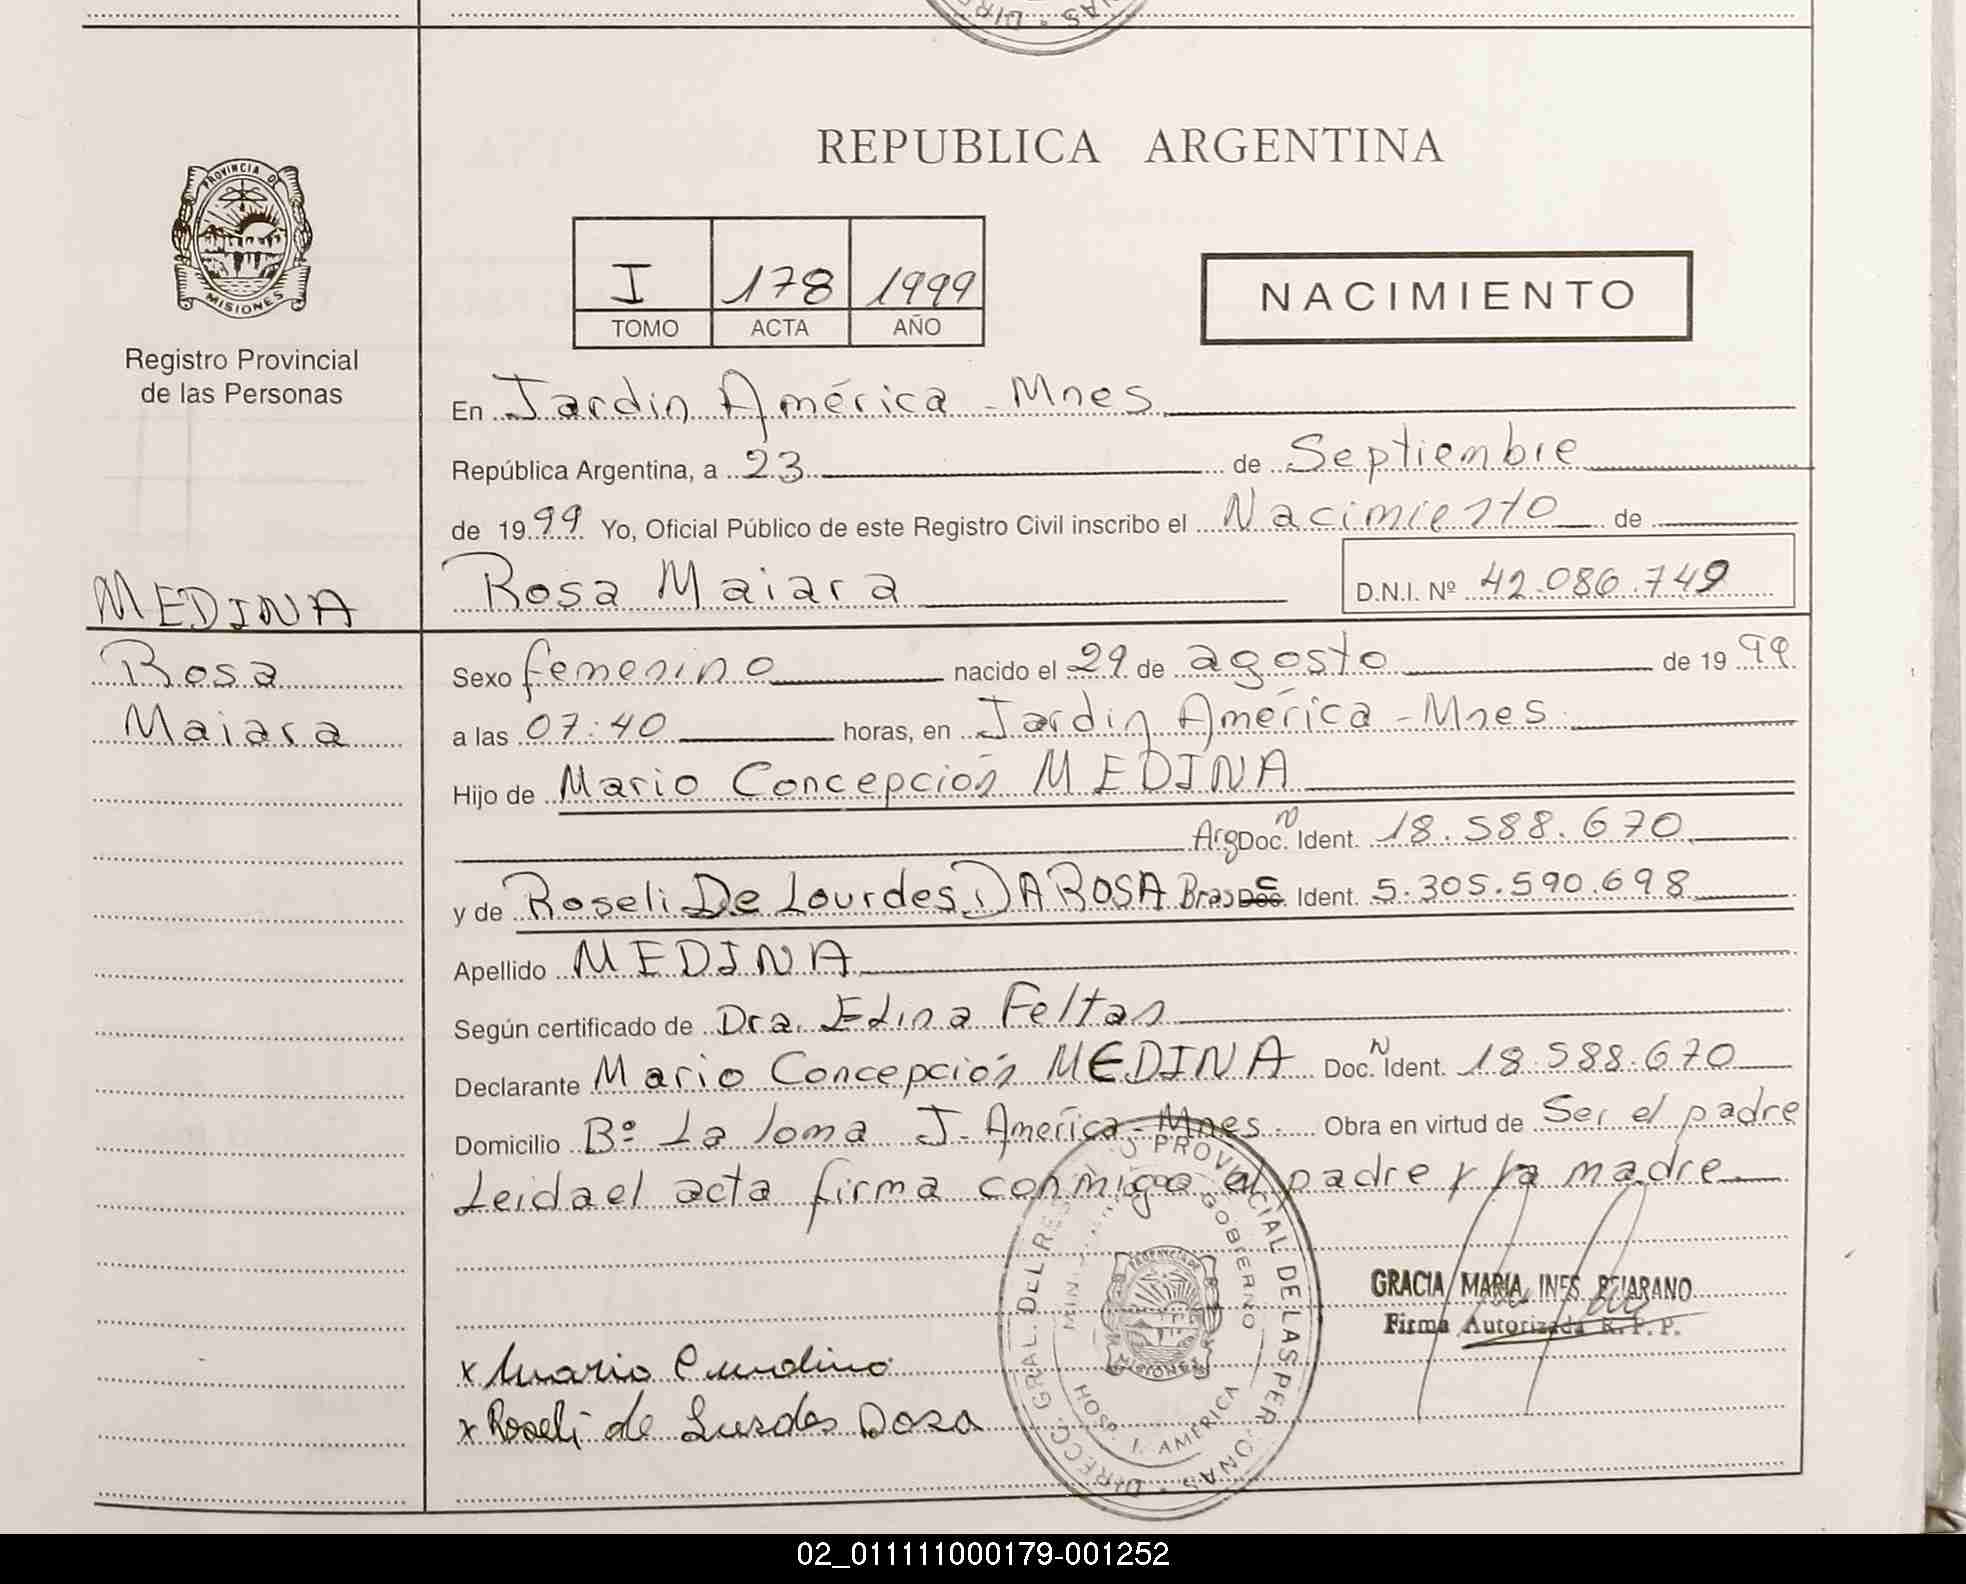 REPUBLICA ARGENTINA
PROVINCIA DE
MISIONES
Registro Provincial
de las Personas
I 178 1999
TOMO ACTA AÑO
NACIMIENTO
En Jardin América - Mnes
República Argentina, a 23 de Septiembre
de 19 99 Yo, Oficial Público de este Registro Civil inscribo el Nacimiento de
MEDINA
Rosa
Maiara
Rosa Maiara D.N.I. Nº 42.086.749
Sexo femenino nacido el 29 de agosto de 19 99
a las 07:40 horas, en Jardin América - Mnes
Hijo de Mario Concepción MEDINA
Arg Doc. N Ident. 18.588.670
y de Roseli De Lourdes DA ROSA Bras Doc C Ident. 5.305.590.698
Apellido MEDINA
Según certificado de Dra. Edina Feltan
Declarante Mario Concepción MEDINA Doc. N Ident. 18.588.670
Domicilio Bº La loma J. América - Mnes. Obra en virtud de Ser el padre
Leida el acta firma conmigo el padre y la madre
GRACIA MARIA INES BEJARANO
Firma Autorizada R. P. P.
DIRECC. GRAL. DEL REG. PROVINCIAL DE LAS PERSONAS
GOBIERNO
HOSP. J. AMERICA
PROVINCIA DE
MISIONES
x Mario
x Roseli de Lurdes Dosa
02_011111000179-001252